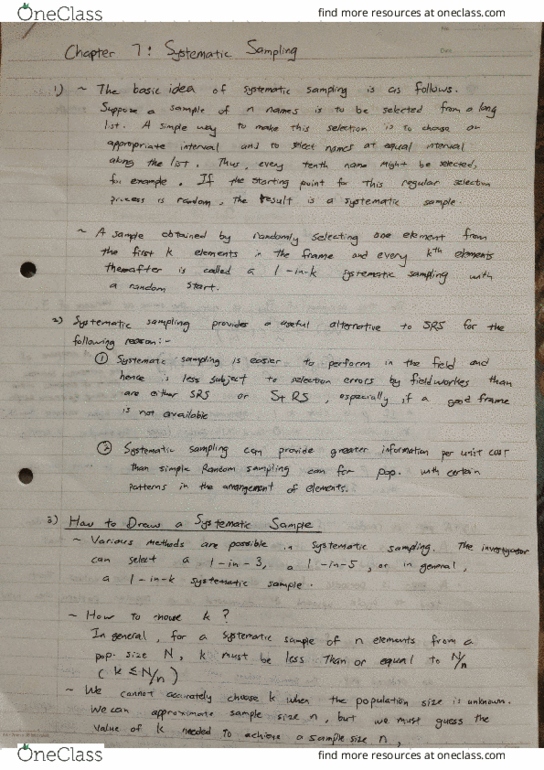 OneClass
find more resources at oneclass.com
Chapter 7: Systematic Sampling
1) ~ The basic idea of systematic sampling is as follows.
Suppose a sample of n names is to be selected from a long
list. A simple way to make this selection is to choose an
appropriate interval and to select names at equal interval
along the list. Thus, every tenth name might be selected,
for example. If the starting point for this regular selection
process is random, the result is a systematic sample.
~ A sample obtained by randomly selecting one element from
the first k elements in the frame and every kth elements
thereafter is called a 1-in-k systematic sampling with
a random start.
2) Systematic sampling provides a useful alternative to SRS for the
following reason:-
① Systematic sampling is easier to perform in the field and
hence is less subject to selection errors by fieldworkes than
are either SRS or StRS, especially if a good frame
is not available
② Systematic sampling can provide greater information per unit cost
than simple Random sampling can for pop. with certain
patterns in the arrangement of elements.
3) How to Draw a Systematic Sample
~ Various methods are possible in systematic sampling. The investigator
can select a 1-in-3, a 1-in-5, or in general,
a 1-in-k systematic sample.
~ How to choose k?
In general, for a systematic sample of n elements from a
pop. size N, k must be less than or equal to N/n
(k ≤ N/n)
~ We cannot accurately choose k when the population size is unknown.
We can approximate sample size n, but we must guess the
value of k needed to achieve a sample size n,
OneClass
find more resources at oneclass.com